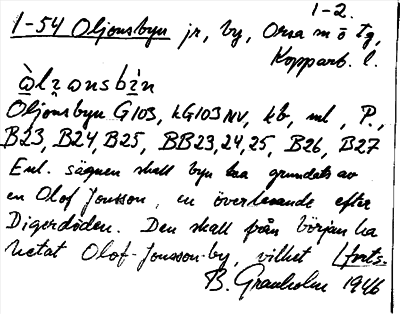 1-2.
1-54 Oljonsbyn jr, by, Orsa m ö tg,
Kopparb. l.
Oljonsbyn G103, kG103NV, kb, ml, P.,
B23, B24, B25, BB23,24,25, B26, B27
Enl. sägnen skall byn ha grundats av
en Olof Jonsson, en överlevande efter
Digerdöden. Den skall från början ha
hetat Olof-Jonsson-by, vilket /forts.
B. Granholm 1946